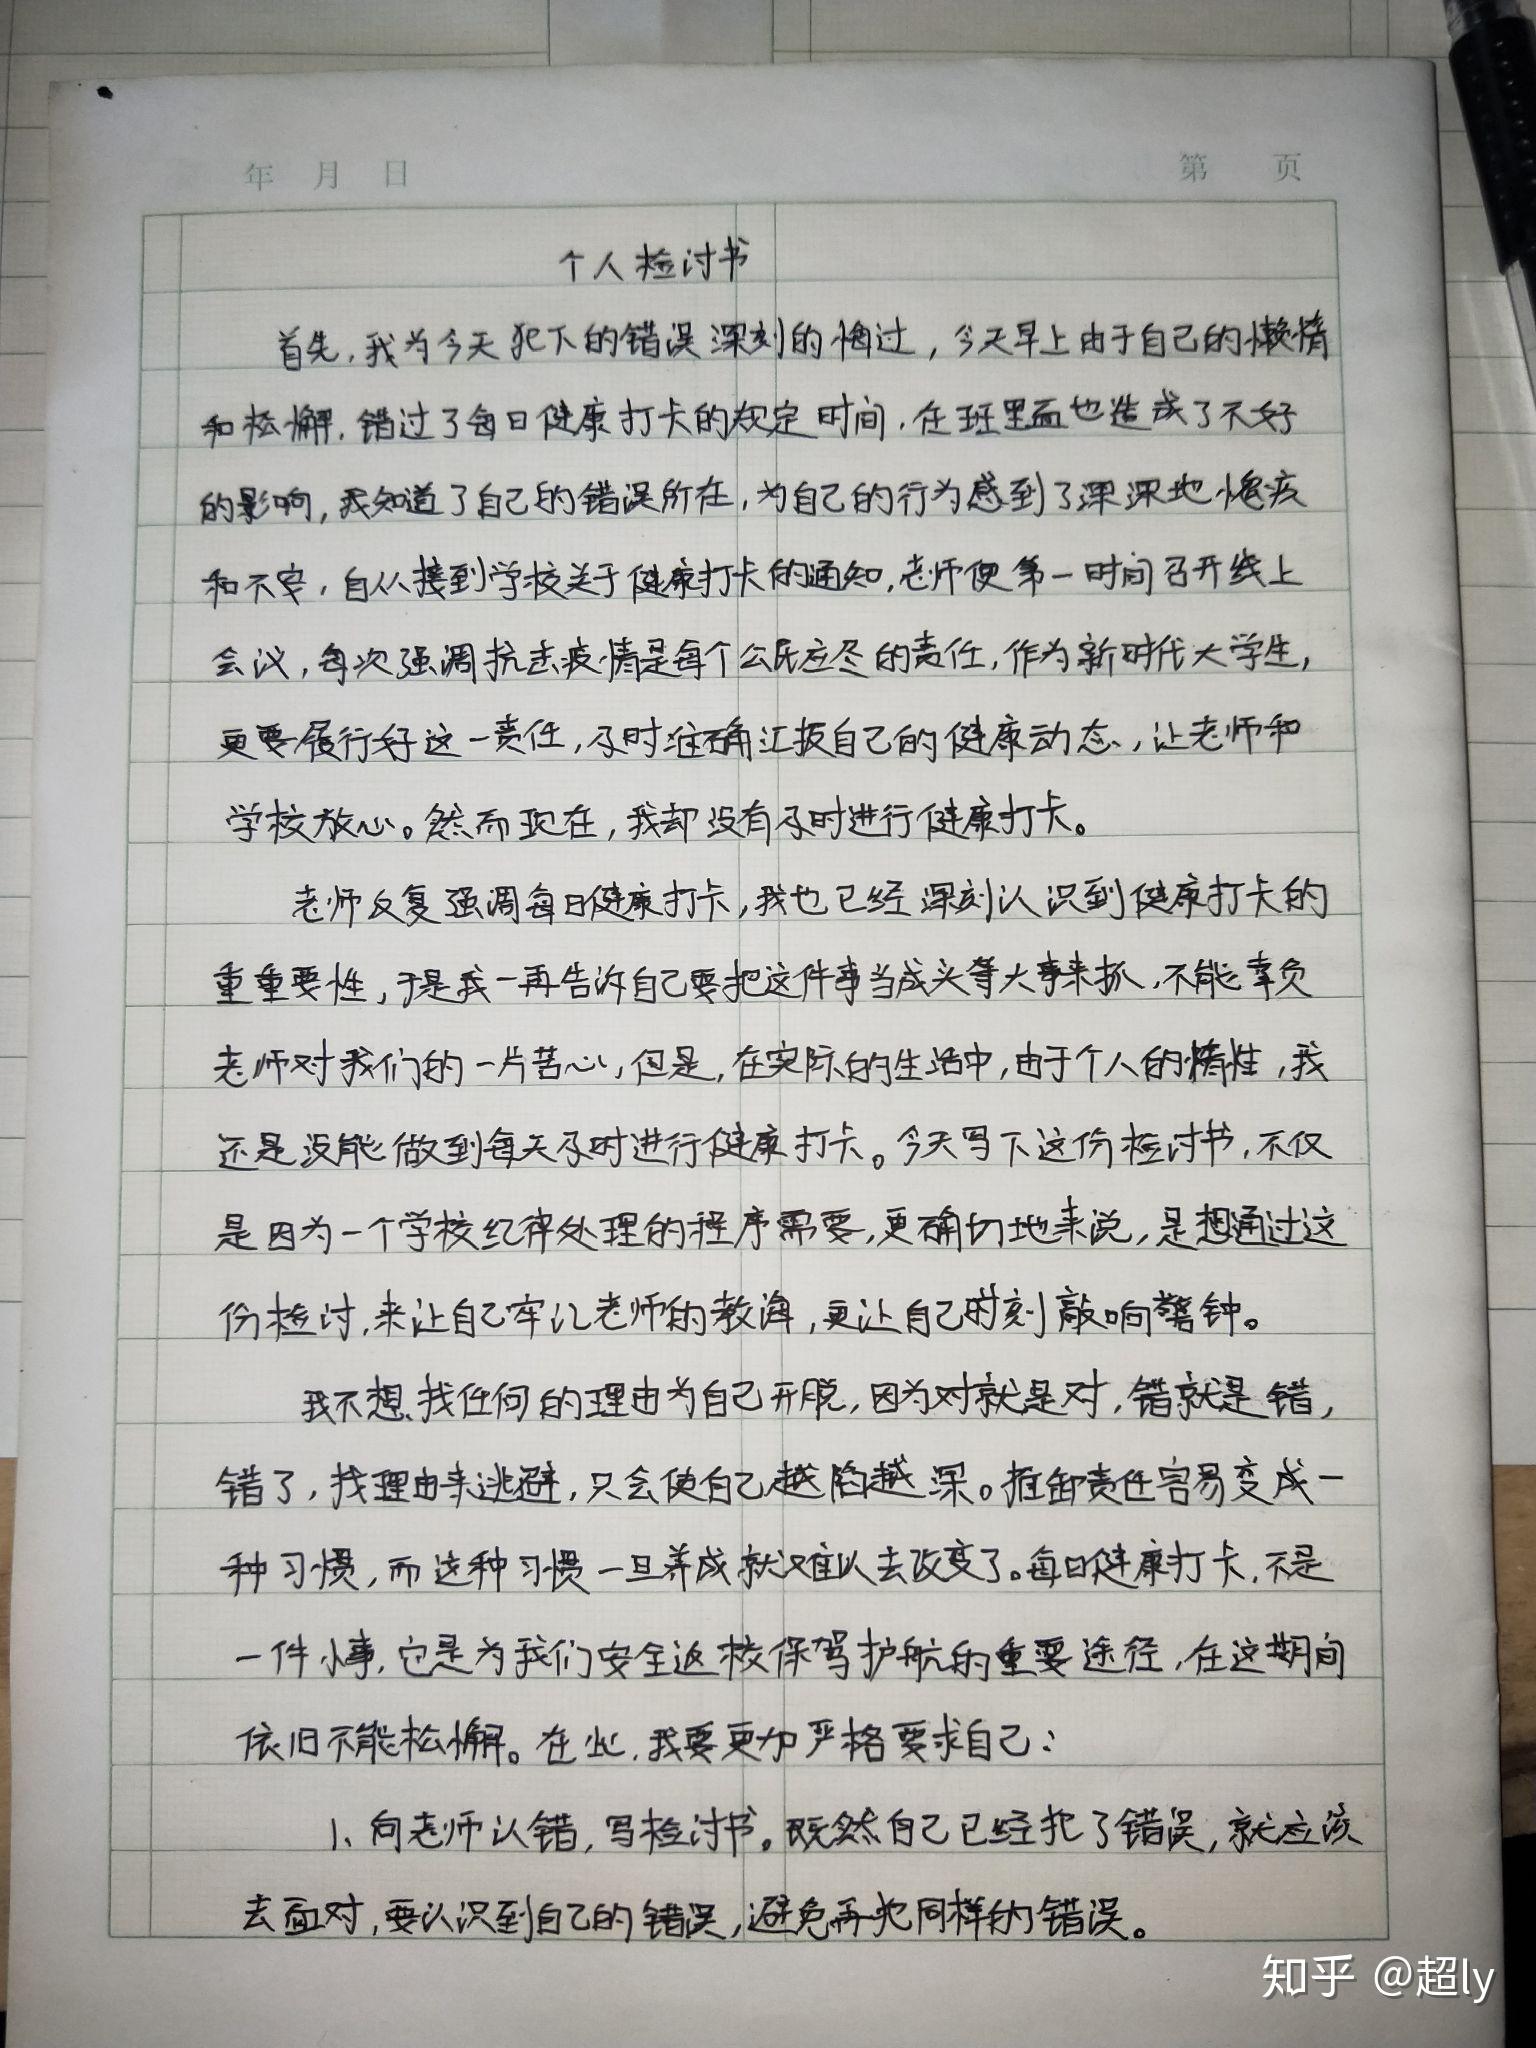 年 月 日
第 页
个人检讨书
首先，我为今天犯下的错误深刻的悔过，今天早上由于自己的懒惰
和松懈，错过了每日健康打卡的规定时间，在班里面也造成了不好
的影响，我知道了自己的错误所在，为自己的行为感到了深深地愧疚
和不安，自从接到学校关于健康打卡的通知，老师便第一时间召开线上
会议，每次强调抗击疫情是每个公民应尽的责任，作为新时代大学生，
更要履行好这一责任，及时准确汇报自己的健康动态，让老师和
学校放心。然而现在，我却没有及时进行健康打卡。
老师反复强调每日健康打卡，我也已经深刻认识到健康打卡的
重重要性，于是我一再告诉自己要把这件事当成头等大事来抓，不能辜负
老师对我们的一片苦心，但是，在实际的生活中，由于个人的惰性，我
还是没能做到每天及时进行健康打卡。今天写下这份检讨书，不仅
是因为一个学校纪律处理的程序需要，更确切地来说，是想通过这
份检讨，来让自己牢记老师的教诲，更让自己时刻敲响警钟。
我不想找任何的理由为自己开脱，因为对就是对，错就是错，
错了，找理由来逃避，只会使自己越陷越深。推卸责任容易变成一
种习惯，而这种习惯一旦养成就难以去改变了。每日健康打卡，不是
一件小事，它是为我们安全返校保驾护航的重要途径，在这期间
依旧不能松懈。在此，我要更加严格要求自己：
1、向老师认错，写检讨书。既然自己已经犯了错误，就应该
去面对，要认识到自己的错误，避免再犯同样的错误。
知乎 @超ly